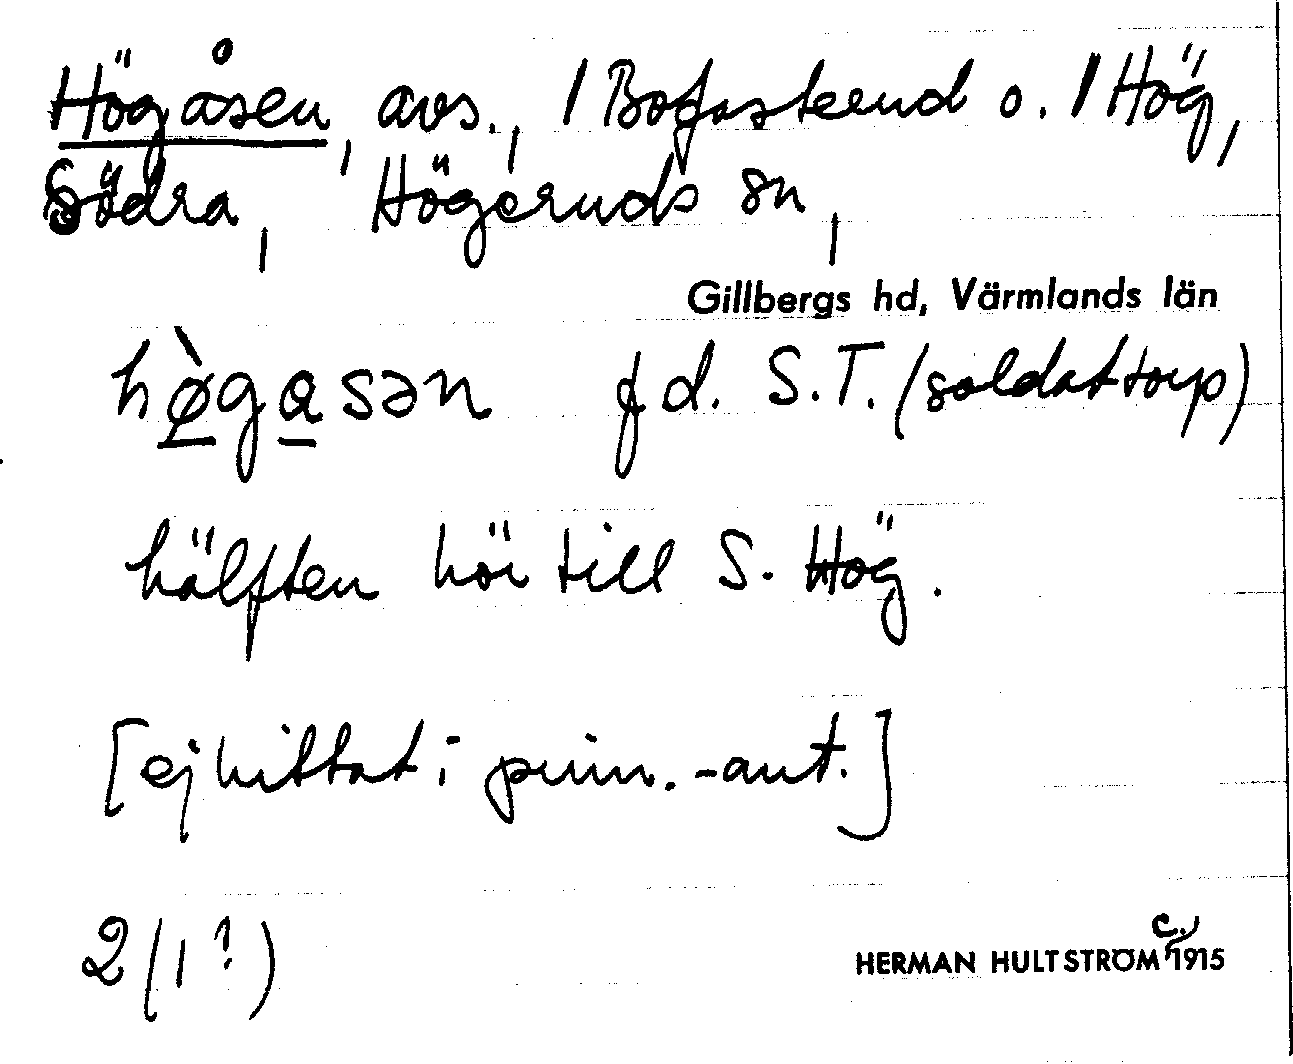 Högåsen, avs., / Bogasteend o. / Hög,
Södra, Högeruds sn,
Gillbergs hd, Värmlands län
hø̀gasən fd. S.T. (soldattorp)
hälften hör till S. Hög.
[ej hittat i prim.-ant.]
2 (1?)
HERMAN HULTSTRÖM c. 1915